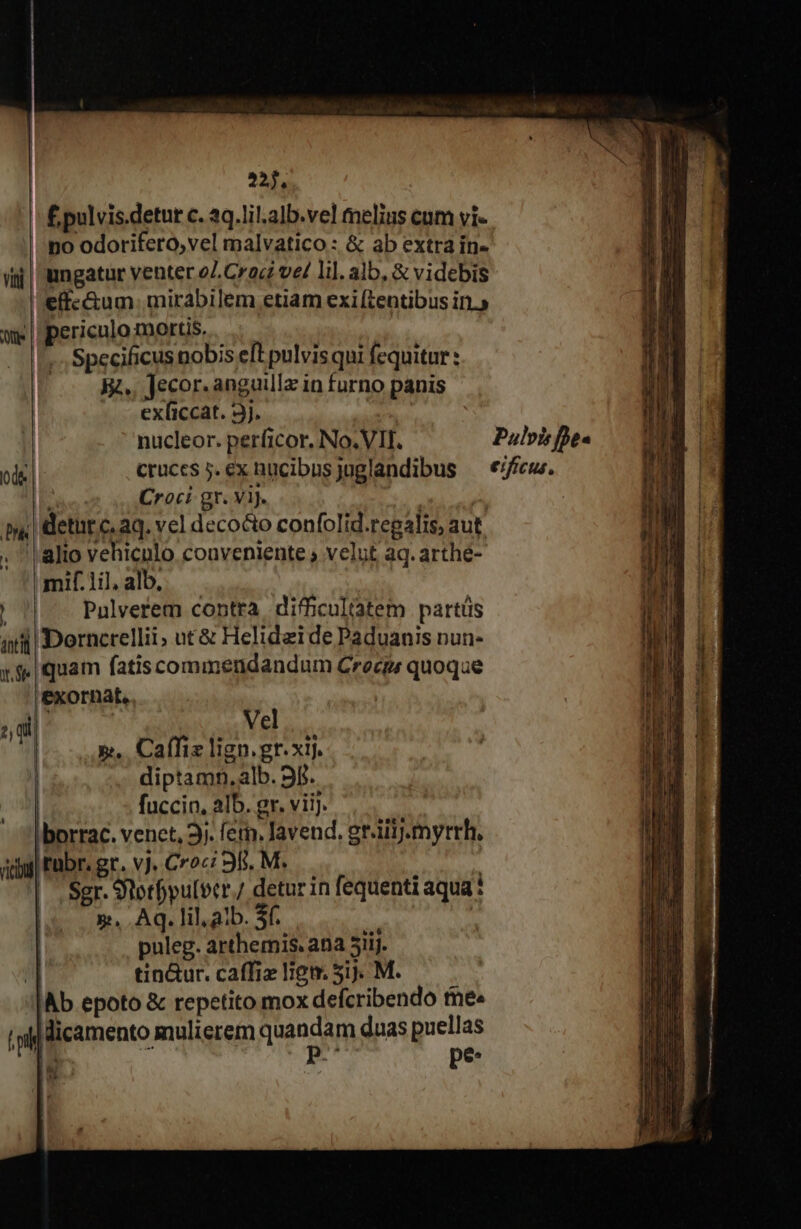 225.
f. pulvis. detur c. aq. lil. alb. vel melius cum vi-
no odorifero, vel malvatico: & ab extra in-
ungatur venter ol. Croci vel lil. alb, & videbis
effectum mirabilem etiam existentibus in
periculo mortis.
Specificus nobis est pulvis qui sequitur:
℞. Jecor. anguillæ in furno panis
exsiccat. ℈j.
nucleor. persicor. No. VII.
Pulvis spe-
cificus.
cruces 5. ex nucibus juglandibus
Croci gr. vij.
detur c. aq. vel decocto consolid. regalis, aut
alio vehiculo conveniente, velut aq. arthe-
mis. lil. alb.
Pulverem contra difficultatem partûs
Dorncrellii, ut & Helidæi de Paduanis nun-
quam satis commendandum Crocus quoque
exornat.
Vel
℞. Cassiæ lign. gr. xij.
diptamn. alb. ℈ß.
succin, alb. gr. viij.
borrac. venet, ℈j. sem. lavend. gr. iiij. myrrh.
rubr. gr. vj. Croci ℈ß. M.
Sgr. Nothpulver / detur in sequenti aqua:
℞. Aq. lil. alb. ℥ß
puleg. arthemis. ana ʒiij.
tinctur. cassiæ lign. ʒij. M.
Ab epoto & repetito mox describendo me-
dicamento mulierem quandam duas puellas
P.
pe-